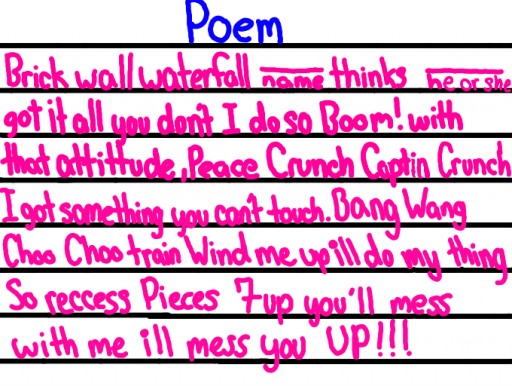 Poem
Brick wall waterfall name thinks he or she
got it all you don't I do so Boom! with
that attittude, Peace Crunch Captin Crunch
I got something you can't touch. Bang Wang
Choo Choo train Wind me up ill do my thing
So reccess Pieces 7up you'll mess
with me ill mess you UP!!!